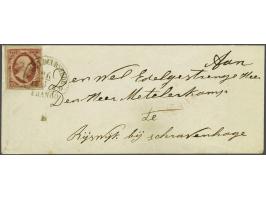 Aan
den wel Edelgestrenge Heer
Den Heer Metelerkamp
te
Rijswijk bij schravenhage
FRANCO